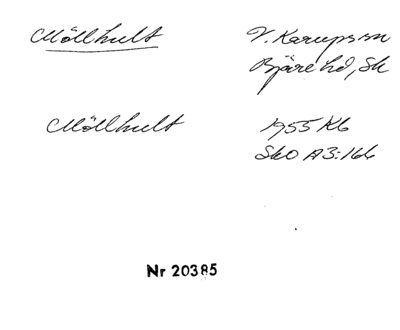 Möllhult V. Karups sn
Bjäre hd, Sk
Möllhult 1955 Kb
SkO A3:166
Nr 20385